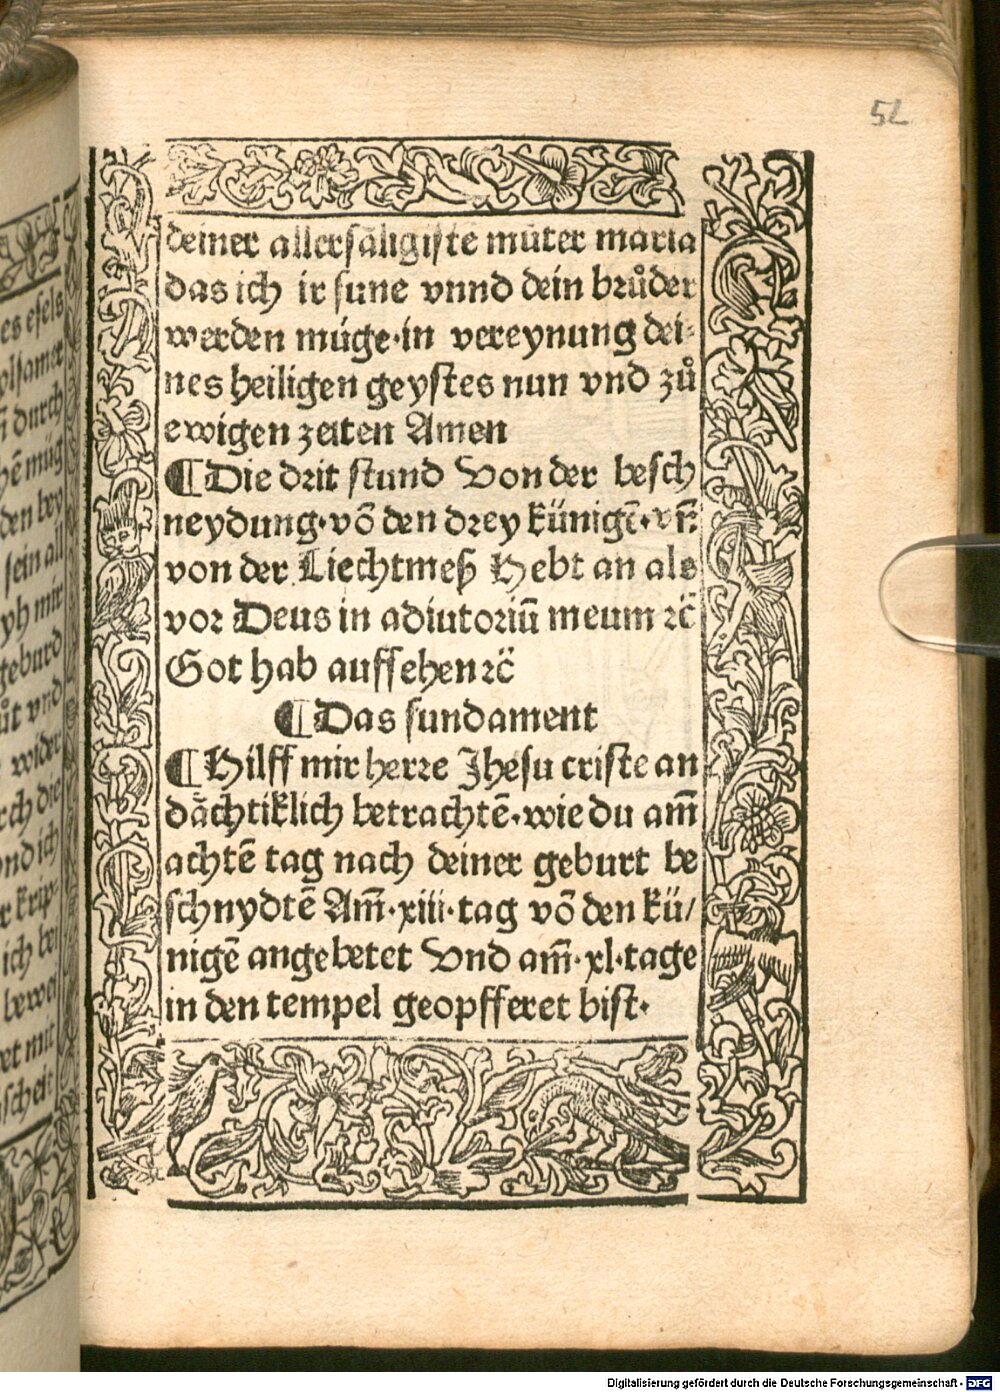 52
deiner allersäligiste můter maria
das ich ir sune vnnd dein brůder
werden müge·in vereynung dei⸗
nes heiligen geystes nun vnd zů
ewigen zeiten Amen
¶Die drit stund Von der besch
neydung·võ den drey künigẽ·vñ
von der Liechtmeß Hebt an als
vor Deus in adiutoriũ meum ꝛc̈
Got hab auffsehen ꝛc̈
¶Das fundament
¶Hilff mir herre Jhesu criste an
dächtiklich betrachtẽ·wie du am̃
achtẽ tag nach deiner geburt be
schnydtẽ Am̃·xiii·tag võ den kü/
nigẽ angebetet Vnd am̃·xl·tage
in den tempel geopfferet bist·
es esels
durch
den bey
sein all
yh mir
geburd
vnd
wider
rch die
ond ich
r krip⸗
ich be
bewa
et mit
scheit
Digitalisierung gefördert durch die Deutsche Forschungsgemeinschaft - DFG